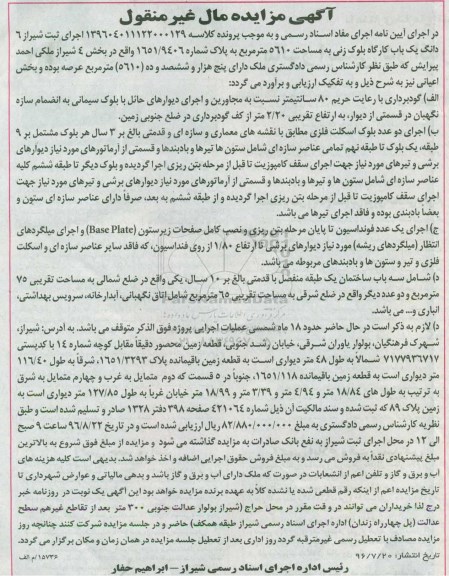 آگهی مزایده مال غیر منقول
در اجرای آیین نامه اجرای مفاد اسناد رسمی و به موجب پرونده کلاسه ۱۳۹۶۰۴۰۱۱۱۲۲۰۰۰۱۲۹ اجرای ثبت شیراز ۶
دانگ یک باب کارگاه بلوک زنی به مساحت ۵۶۱۰ مترمربع به پلاک شماره ۱۶۵۱/۹۴۰۶ واقع در بخش ۴ شیراز ملکی احمد
پیرایش که طبق نظر کارشناس رسمی دادگستری ملک دارای پنج هزار و ششصد و ده (۵۶۱۰) مترمربع عرصه بوده و بخش
اعیانی نیز به شرح ذیل و به تفکیک ارزیابی و برآورد می گردد:
الف) گودبرداری با رعایت حریم ۸۰ سانتیمتر نسبت به مجاورین و اجرای دیوارهای حائل با بلوک سیمانی به انضمام سازه
نگهبان در قسمتی از دیوار، به ارتفاع تقریبی ۲/۲۰ متر از کف گودبرداری در ضلع جنوبی زمین.
ب) اجرای دو عدد بلوک اسکلت فلزی مطابق با نقشه های معماری و سازه ای و قدمتی بالغ بر ۳ سال هر بلوک مشتمل بر ۹
طبقه، یک بلوک تا طبقه نهم تمامی عناصر سازه ای شامل ستون ها تیرها و بادبندها و قسمتی از آرماتورهای مورد نیاز دیوارهای
برشی و تیرهای مورد نیاز جهت اجرای سقف کامپوزیت تا قبل از مرحله بتن ریزی اجرا گردیده و بلوک دیگر تا طبقه ششم کلیه
عناصر سازه ای شامل ستون ها و تیرها و بادبندها و قسمتی از آرماتورهای مورد نیاز دیوارهای برشی و تیرهای مورد نیاز جهت
اجرای سقف کامپوزیت تا قبل از مرحله بتن ریزی اجرا گردیده و از طبقه ششم به بعد، صرفاً دارای عناصر سازه ای ستون و
بعضا بادبندی بوده و فاقد اجرای تیرها می باشد.
ج) اجرای یک عدد فونداسیون تا پایان مرحله بتن ریزی و نصب کامل صفحات زیرستون (Base Plate) و اجرای میلگردهای
انتظار (میلگردهای ریشه) مورد نیاز دیوارهای برشی تا ارتفاع ۱/۸۰ از روی فنداسیون، که فاقد سایر عناصر سازه ای و اسکلت
فلزی و تیر و ستون ها و بادبندهای مربوطه می باشد.
د) شامل سه باب ساختمان یک طبقه منفصل با قدمتی بالغ بر ۱۰ سال، یکی واقع در ضلع شمالی به مساحت تقریبی ۷۵
مترمربع و دو عدد دیگر واقع در ضلع شرقی به مساحت تقریبی ۶۵ مترمربع شامل اتاق نگهبانی، آبدارخانه، سرویس بهداشتی،
انباری و... می باشد.
ذ) لازم به ذکر است در حال حاضر حدود ۱۸ ماه شمسی عملیات اجرایی پروژه فوق الذکر متوقف می باشد. به آدرس: شیراز،
شهرک فرهنگیان، بولوار یاوران شرقی، خیابان رشد جنوبی، قطعه زمین محصور دقیقاً مقابل کوچه شماره ۱۴ با کدپستی
۷۱۷۷۹۳۶۷۱۷ شمالاً به طول ۴۸ متر دیواری است به قطعه زمین باقیمانده پلاک ۱۶۵۱/۳۲۹۳، شرقاً به طول ۱۱۶/۴۰
متر دیواری است به قطعه زمین باقیمانده ۱۶۵۱/۱۱۸، جنوباً در ۵ قسمت که دوم متمایل به غرب و چهارم متمایل به شرق
به ترتیب به طول های ۱۸/۸۴ متر و ۴/۹۴ متر و ۳/۳۹ متر و ۱۸/۹۹ متر خیابان غرباً به طول ۱۲۷/۸۵ متر دیواری است به
زمین پلاک ۸۹ که ثبت شده و سند مالکیت آن ذیل شماره ۴۲۱۰۶۴ صفحه ۳۹۸ دفتر ۱۳۲۸ صادر و تسلیم شده است و طبق
نظریه کارشناس رسمی دادگستری به مبلغ ۸۲/۸۸۰/۰۰۰/۰۰۰ ریال ارزیابی شده است و در تاریخ ۹۶/۸/۲۲ ساعت ۹ صبح
الی ۱۲ در محل اجرای ثبت شیراز به نفع بانک صادرات به مزایده گذاشته می شود و مزایده از مبلغ فوق شروع به بالاترین
مبلغ پیشنهادی نقداً به فروش می رسد و به مبلغ فروش حقوق اجرایی اضافه و اخذ خواهد شد. بدیهی است کلیه هزینه های
آب و برق و گاز و تلفن اعم از انشعابات در صورت که ملک دارای آب و برق و گاز باشد و بدهی مالیاتی و عوارض شهرداری تا
تاریخ مزایده اعم از اینکه رقم قطعی شده یا نشده کلاً به عهده برنده مزایده خواهد بود این آگهی یک نوبت در روزنامه خبر
درج لذا خریداران می توانند در وقت مقرر در محل حراج (شیراز بولوار عدالت جنوبی ۳۰۰ متر بعد از تقاطع غیرهم سطح
عدالت (پل چهارراه زندان) اداره اجرای اسناد رسمی شیراز طبقه همکف) حاضر و در جلسه مزایده شرکت کنند چنانچه روز
مزایده مصادف با تعطیل رسمی غیرمترقبه گردد روز اداری بعد از تعطیل جلسه مزایده در همان زمان و مکان برگزار می گردد.
تاریخ انتشار: ۹۶/۷/۲۰
۱۵۷۳۶/م الف
رئیس اداره اجرای اسناد رسمی شیراز – ابراهیم حفار